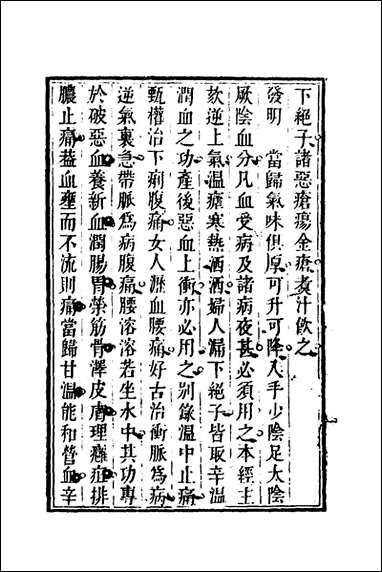 下絕子諸惡瘡瘍金瘡煮汁飲之
發明　當歸氣味俱厚可升可降入手少陰足太陰
厥陰血分凡血受病及諸病夜甚必須用之本經主
欬逆上氣溫瘧寒熱洒洒婦人漏下絕子皆取辛溫
潤血之功產後惡血上衝亦必用之别錄溫中止痛
甄權治下痢腹痛女人瀝血腰痛好古治衝脈爲病
逆氣裏急帶脈爲病腹痛腰溶溶若坐水中其功專
於破惡血養新血潤腸胃榮筋骨澤皮膚理癰疽排
膿止痛葢血壅而不流則痛當歸甘溫能和營血辛